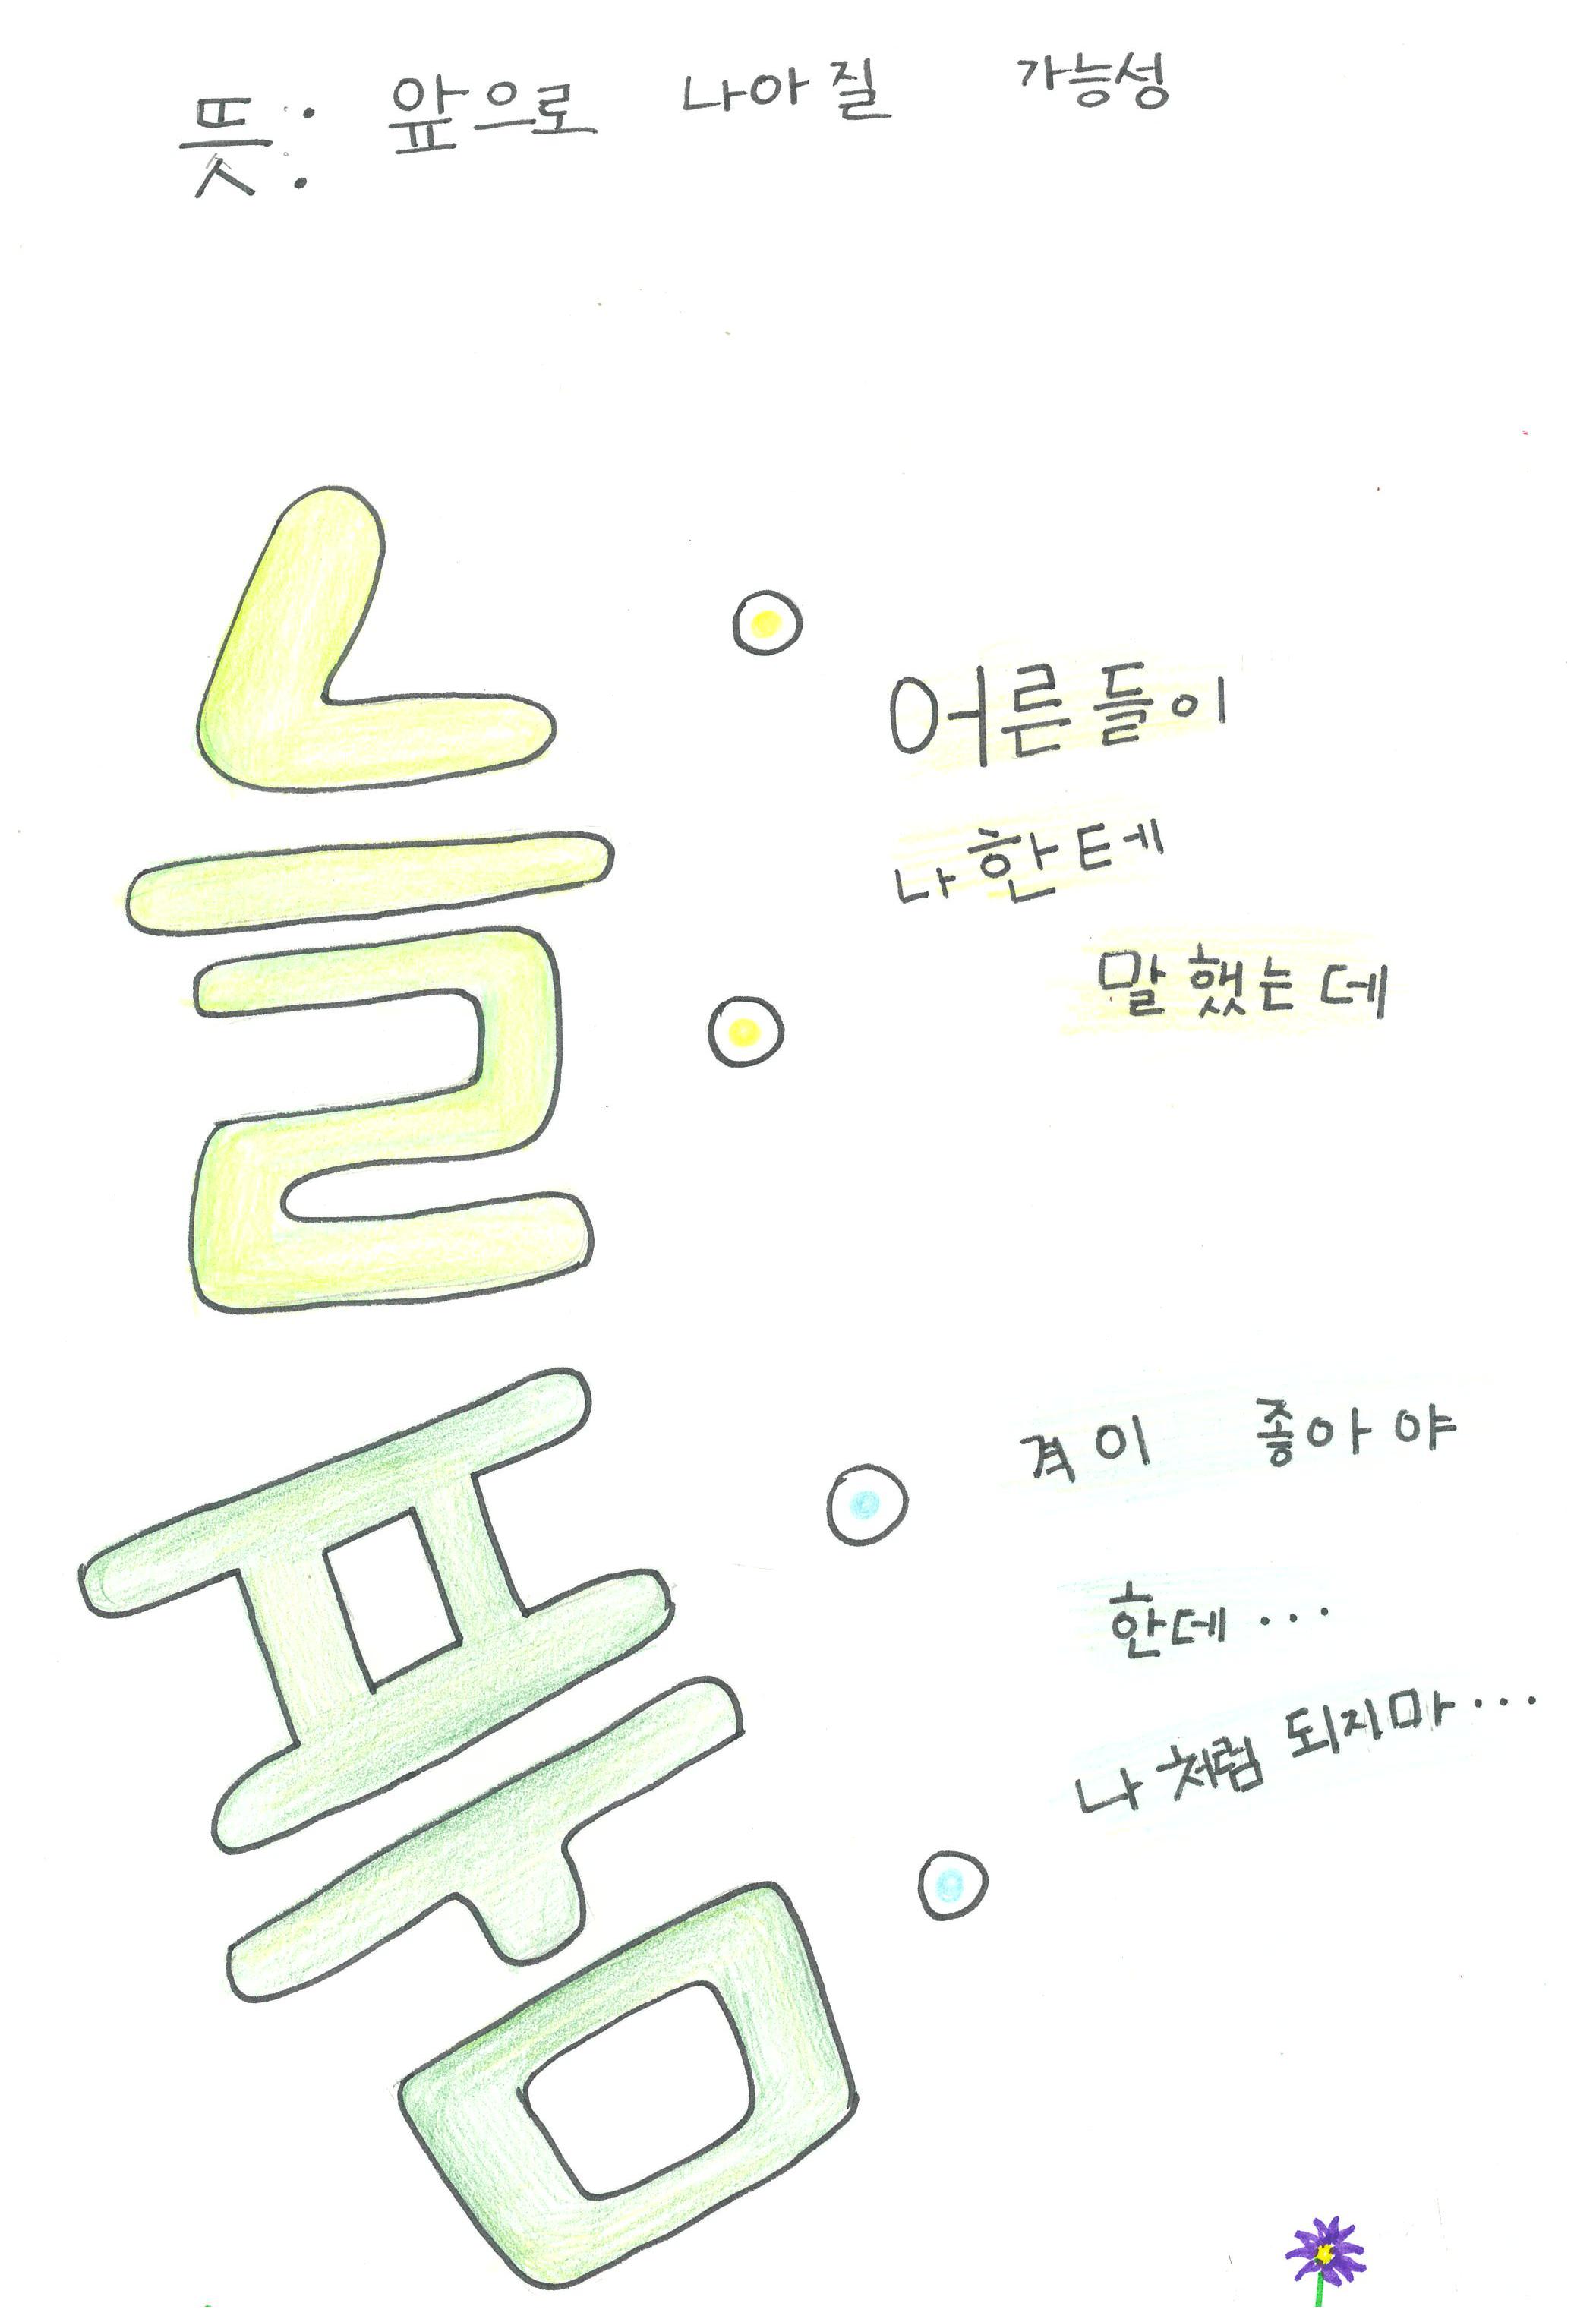 뜻: 앞으로 나아질 가능성
늘
품
어른들이
나한테
말했는데
격이 좋아야
한데...
나처럼 되지마...